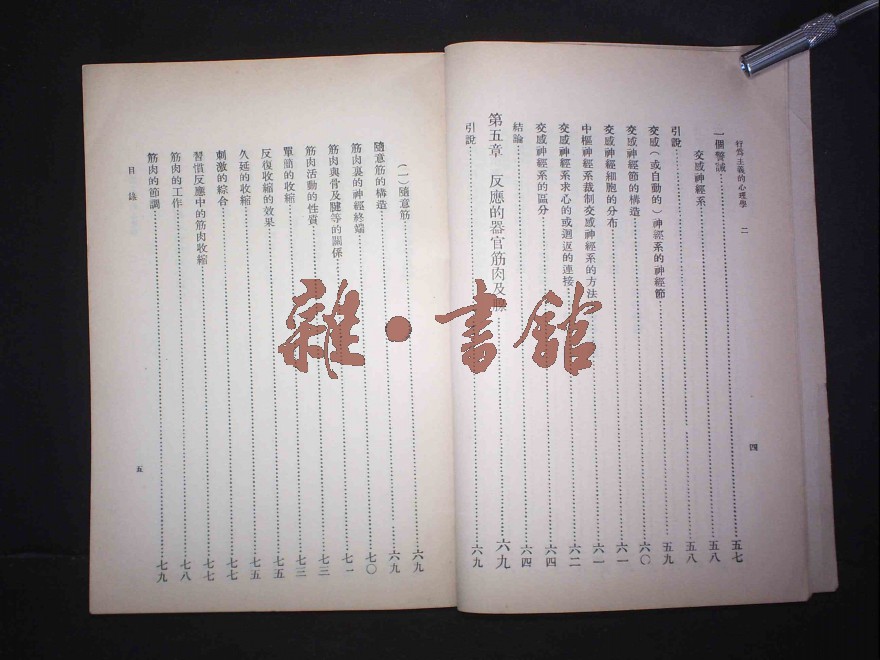 行為主義的心理學 二
一個警誡……五七
交感神經系……五八
引說……五八
交感（或自動的）神經系的神經節……五九
交感神經節的構造……六〇
交感神經細胞的分布……六一
中樞神經系裁制交感神經系的方法……六一
交感神經系求心的或迴返的連接……六二
交感神經系的區分……六四
結論……六四
第五章 反應的器官筋肉及腺……六九
引說……六九
四
（一）隨意筋……六九
隨意筋的構造……六九
筋肉裏的神經終端……七〇
筋肉與骨及腱等的關係……七一
筋肉活動的性質……七三
單簡的收縮……七三
反復收縮的效果……七五
久延的收縮……七五
刺激的綜合……七七
習慣反應中的筋肉收縮……七七
筋肉的工作……七八
筋肉的節調……七九
目錄
五
雜·書館